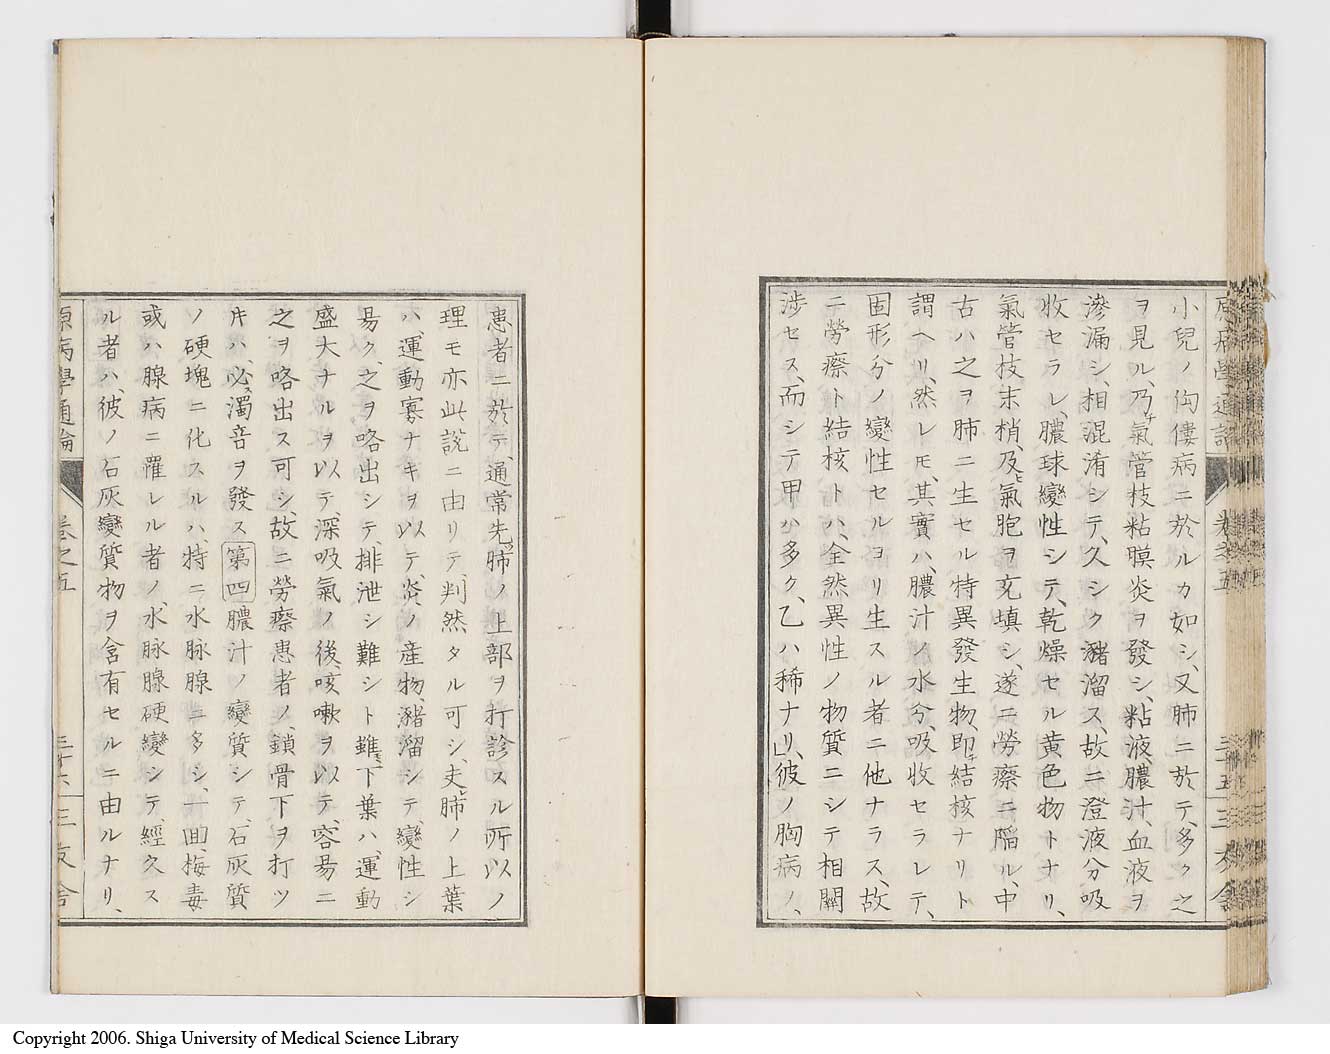 小兒ノ佝僂病ニ於ルカ如シ、又肺ニ於テ、多ク之
ヲ見ル、乃チ氣管枝粘膜炎ヲ發シ、粘液、膿汁、血液ヲ
滲漏シ、相混淆シテ、久シク瀦溜ス、故ニ澄液分吸
收セラレ、膿球變性シテ、乾燥セル黄色物トナリ、
氣管枝末梢、及ヒ氣胞ヲ充填シ、遂ニ勞瘵ニ陥ル、中
古ハ之ヲ肺ニ生セル特異發生物、即チ結核ナリト
謂ヘリ、然レモ、其實ハ、膿汁ノ水分、吸收セラレテ、
固形分ノ變性セルヨリ生スル者ニ他ナラス、故
ニ勞瘵ト結核トハ、全然異性ノ物質ニシテ相關
涉セス、而シテ甲ハ多ク、乙ハ稀ナリ、彼ノ胸病ノ、
原病學通論 卷之五 三十五 三友舎
患者ニ於テ、通常先ツ肺ノ上部ヲ打診スル所以ノ
理モ亦此説ニ由リテ、判然タル可シ、夫レ肺ノ上葉
ハ、運動寡ナキヲ以テ、炎ノ産物、瀦溜シテ、變性シ
易ク、之ヲ咯出シテ、排泄シ難シト雖モ、下葉ハ、運動
盛大ナルヲ以テ、深吸氣ノ後、咳嗽ヲ以テ、容易ニ
之ヲ咯出ス可シ、故ニ勞瘵患者ノ、鎖骨下ヲ打ツ
片ハ、必ス濁音ヲ發ス第四膿汁ノ變質シテ、石灰質
ノ硬塊ニ化スルハ、特ニ水脉腺ニ多シ、一回、梅毒
或ハ腺病ニ罹レル者ノ、水脉腺、硬變シテ、經久ス
ル者ハ、彼ノ石灰變質物ヲ含有セルニ由ルナリ、
原病學通論 卷之五 三十六 三友舎
Copyright 2006. Shiga University of Medical Science Library